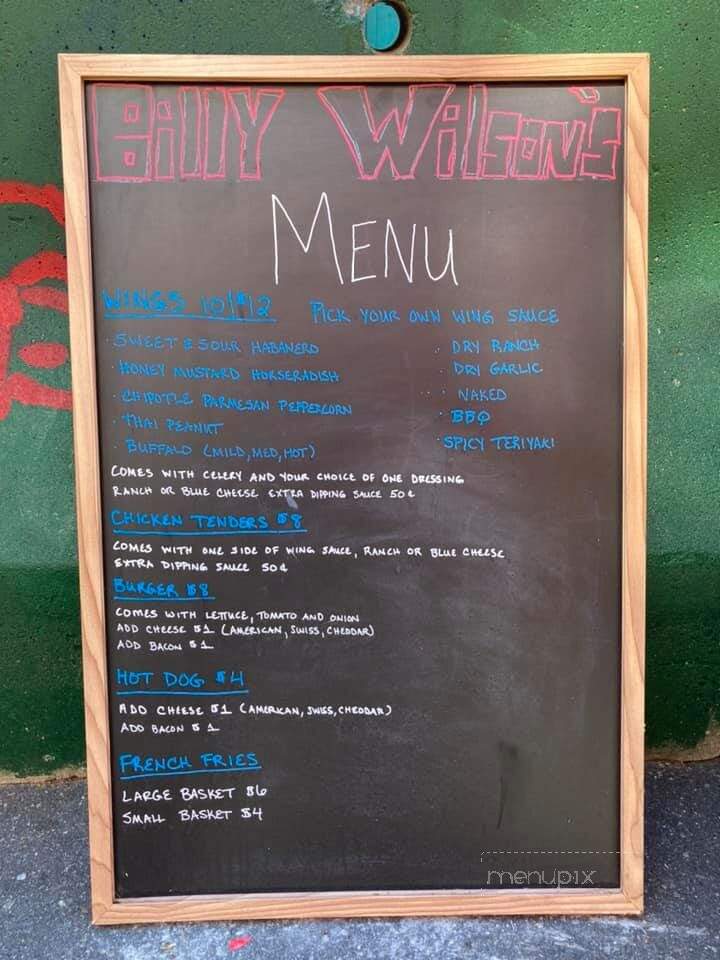 Billy Wilson's
MENU
WINGS 10/$12 PICK YOUR OWN WING SAUCE
· SWEET & SOUR HABANERO
· HONEY MUSTARD HORSERADISH
· CHIPOTLE PARMESAN PEPPERCORN
· THAI PEANUT
· BUFFALO (MILD, MED, HOT)
· DRY RANCH
· DRY GARLIC
· NAKED
· BBQ
· SPICY TERIYAKI
COMES WITH CELERY AND YOUR CHOICE OF ONE DRESSING
RANCH OR BLUE CHEESE EXTRA DIPPING SAUCE 50¢
CHICKEN TENDERS $8
COMES WITH ONE SIDE OF WING SAUCE, RANCH OR BLUE CHEESE
EXTRA DIPPING SAUCE 50¢
BURGER $8
COMES WITH LETTUCE, TOMATO AND ONION
ADD CHEESE $1 (AMERICAN, SWISS, CHEDDAR)
ADD BACON $1
HOT DOG $4
ADD CHEESE $1 (AMERICAN, SWISS, CHEDDAR)
ADD BACON $1
FRENCH FRIES
LARGE BASKET $6
SMALL BASKET $4
menupix